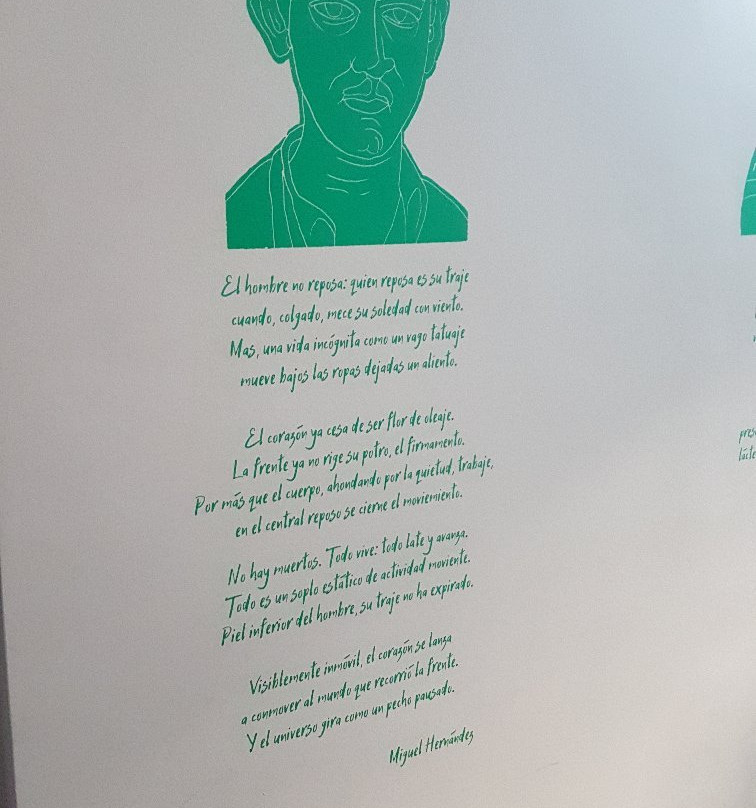 El hombre no reposa: quien reposa es su traje
cuando, colgado, mece su soledad con viento.
Mas, una vida incógnita como un vago tatuaje
mueve bajos las ropas dejadas un aliento.
El corazón ya cesa de ser flor de oleaje.
La frente ya no rige su potro, el firmamento.
Por más que el cuerpo, ahondando por la quietud, trabaje,
en el central reposo se cierne el moviemiento.
No hay muertos. Todo vive: todo late y avanza.
Todo es un soplo estático de actividad moviente.
Piel inferior del hombre, su traje no ha expirado.
Visiblemente inmóvil, el corazón se lanza
a conmover al mundo que recorrió la frente.
Y el universo gira como un pecho pausado.
Miguel Hernández